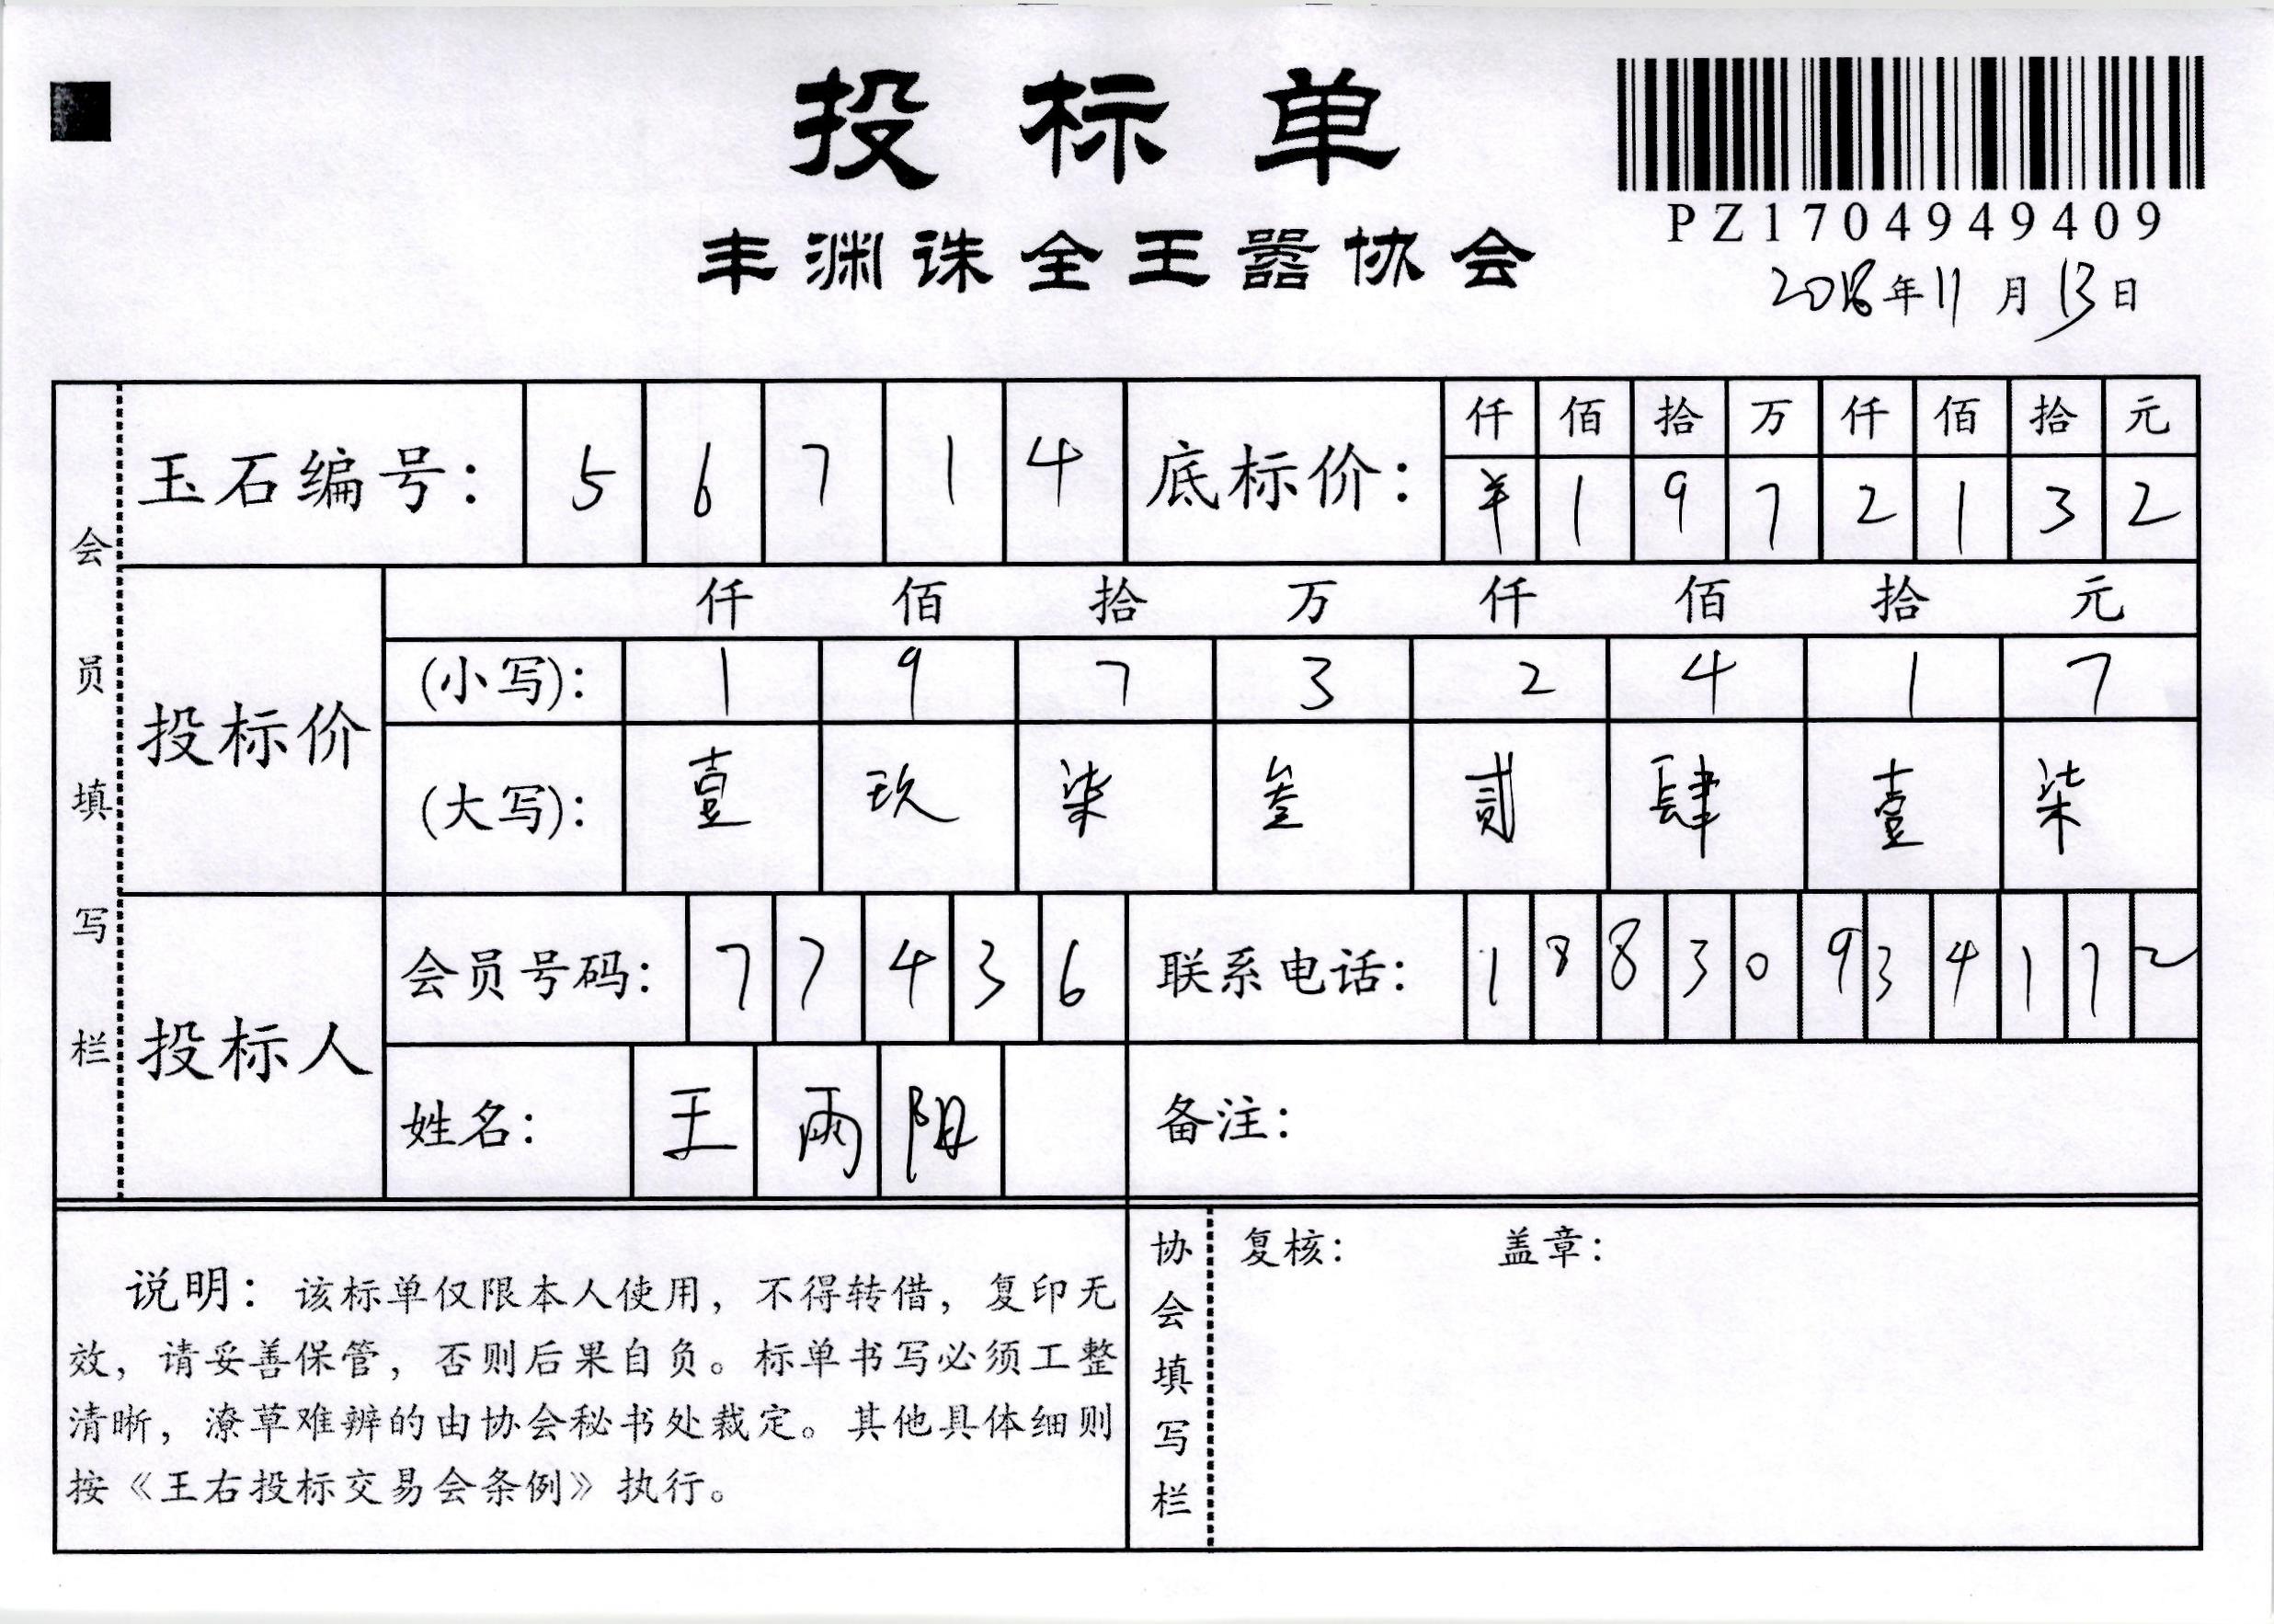 投标单
PZ1704949409
丰渊诛全王嚣协会
2018年11月13日
会员填写栏
玉石编号: 5 6 7 1 4
底标价: 仟 佰 拾 万 仟 佰 拾 元
¥ 1 9 7 2 1 3 2
投标价
仟 佰 拾 万 仟 佰 拾 元
(小写): 1 9 7 3 2 4 1 7
(大写): 壹 玖 柒 叁 贰 肆 壹 柒
投标人
会员号码: 7 7 4 3 6
联系电话: 1 8 8 3 0 9 3 4 1 7 2
姓名: 王 雨 阳
备注:
说明: 该标单仅限本人使用, 不得转借, 复印无
效, 请妥善保管, 否则后果自负。标单书写必须工整
清晰, 潦草难辨的由协会秘书处裁定。其他具体细则
按《王右投标交易会条例》执行。
协会填写栏
复核: 盖章: